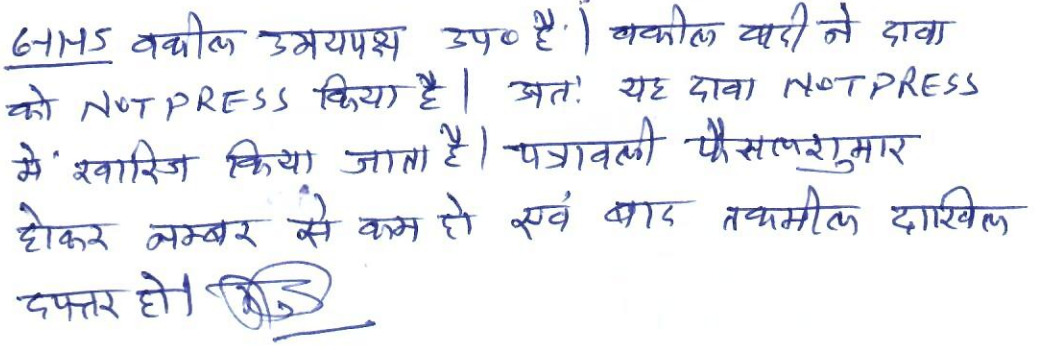 6-11-15 वकील उभयपक्ष उप० है। वकील वादी ने दावा
को NOT PRESS किया है। अतः यह दावा NOT PRESS
में खारिज किया जाता है। पत्रावली फैसलशुमार
होकर नम्बर से कम हो एवं बाद तकमील दाखिल
दफ्तर हो।